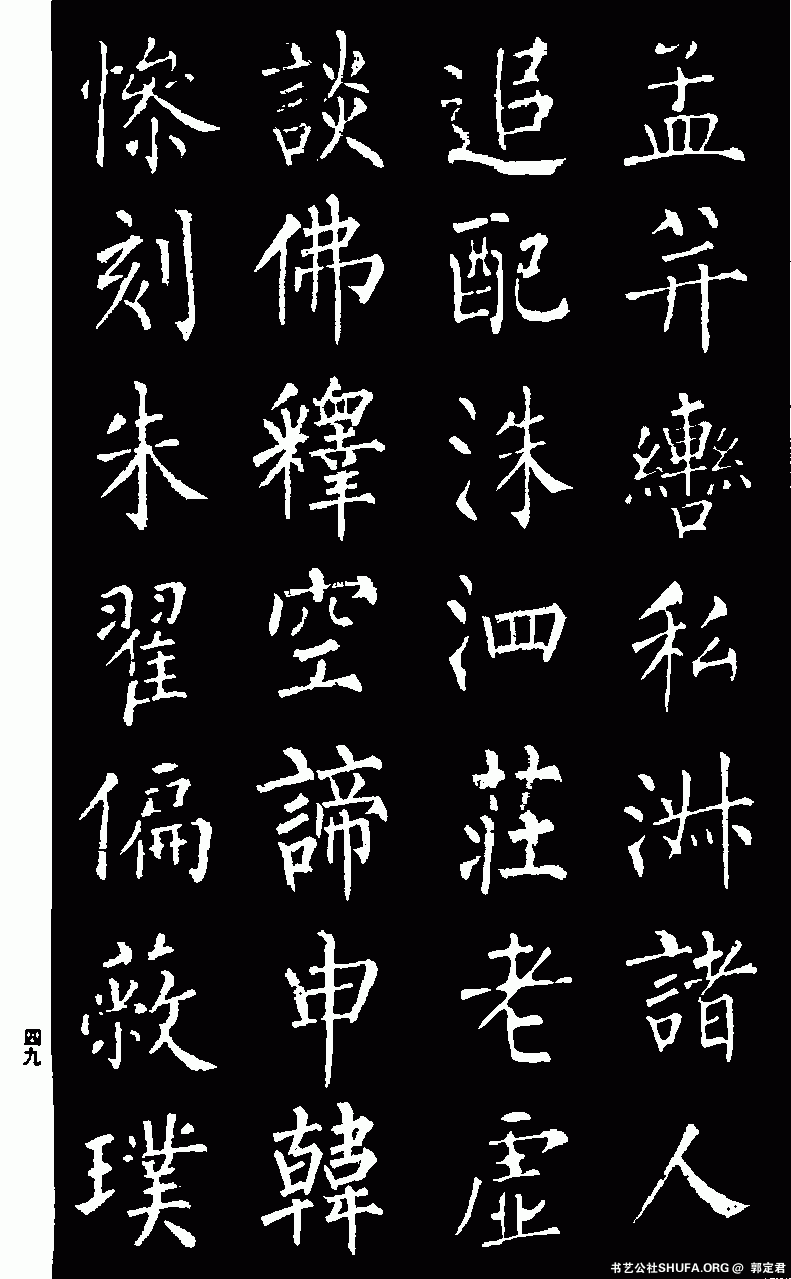 孟并轡私淋諸人
追配洙泗莊老虛
談佛釋空諦申韓
慘刻朱翟偏蔽璞
四九
书艺公社SHUFA.ORG @ 郭定君